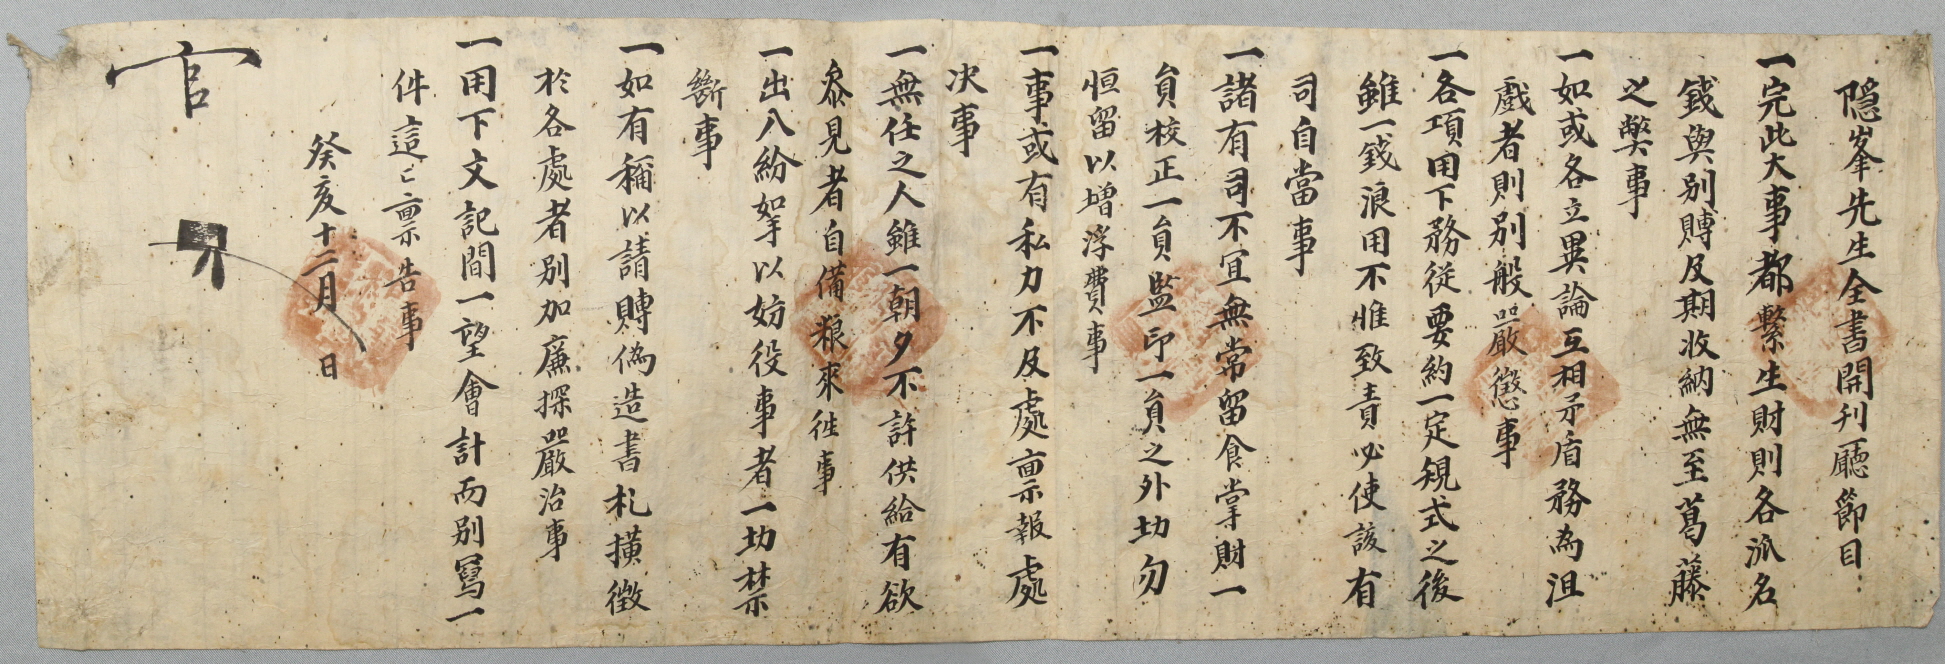 隱峯先生全書開刋廳節目
一完此大事都繫生財則各派名
錢與別賻及期收納無至葛藤
之獘事
一如或各立異論互相矛盾務爲沮
戲者則別般嚴懲事
一各項用下務從要約一定規式之後
雖一錢浪用不惟致責必使該有
司自當事
一諸有司不宜無常留食掌財一
員校正一員監印一員之外切勿
恒留以增浮費事
一事或有私力不及處稟報處
決事
一無任之人雖一朝夕不許供給有欲
叅見者自備粮來徃事
一出入紛挐以妨役事者一切禁
斷事
一如有稱以請賻僞造書札橫徵
於各處者別加廉探嚴治事
一用下文記間一望會計而別寫一
件這這稟告事
癸亥十二月 日
官